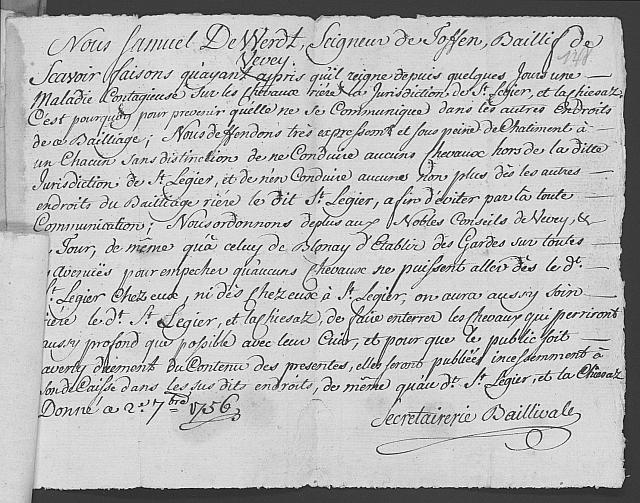 Nous Samuel De Werdt, Seigneur de Toffen, Baillif de
Vevey.
Scavoir faisons qu'ayant appris qu'il reigne depuis quelques Jours une
148
Maladie Contagieuse sur les Chevaux rière la Jurisdiction de St. Legier, et la Chiesaz
C'est pourquoy pour prevenir qu'elle ne se Communique dans les autres Endroits
de ce Bailliage; Nous deffendons très expressemt. et sous peine de Chatiment à
un Chacun sans distinction de ne Conduire aucuns Chevaux hors de la ditte
Jurisdiction de St. Légier, et de n'en Conduire aucuns non plus dès les autres
endroits du Bailliage rière le dit St. Legier, afin d'éviter par la toute
Communication; Nous ordonnons de plus aux Nobles Conseils de Vevey, &
Tour, de même qu'à celuy de Blonay d'Etablir des Gardes sur toutes
Avenuës pour empecher qu'aucuns Chevaux ne puissent aller dès le dt.
St. Legier Chez eux, ni dès Chez eux à St. Legier, on aura aussy soin
rière le dt. St. Legier, et la Chiesaz, de faire enterrer les chevaux qui perriront
aussy profond que possible avec leur Cuir, et pour que le public soit
averti düement du Contenu des presentes, elles seront publiées incessemment à
son de Caisse dans les sus dits endroits, de même qu'au dt. St. Legier, et la Chiesaz
Donné ce 2e. 7bre 1756
Secretairerie Baillivale